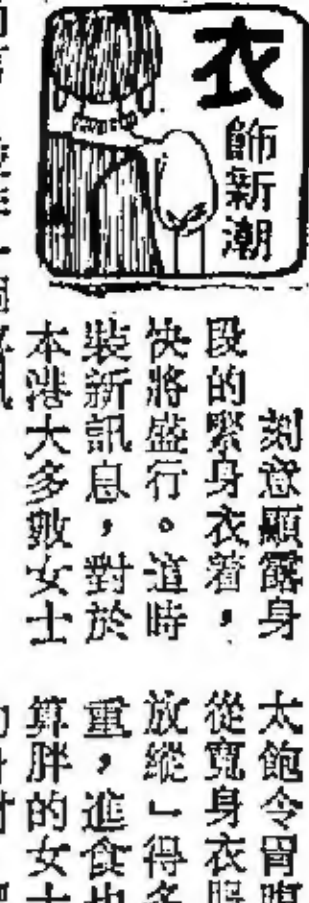 衣
飾新潮
刻意顯露身
段的緊身衣着，
快將盛行。這時
裝新訊息，對於
本港大多數女士
太飽令胃
從寬身衣服
放縱」得多
重，進食也
算胖的女士